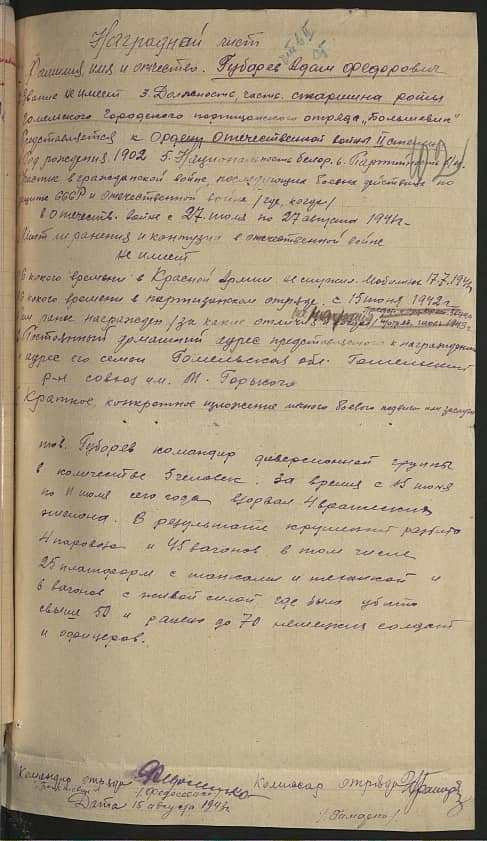 Наградной лист
Фамилия, имя и отчество. Губарев Адам Федорович
Звание не имеет 3. Должность, часть. старшина роты
Гомельского городского партизанского отряда "Большевик"
Представляется к Ордену Отечественной войны II степени
Год рождения 1902 5. Национальность белор. 6. Партийность
Участие в гражданской войне, последующих боевых действиях по
защите СССР и отечественной войне /где, когда/
в отечеств. войне с 27 июля по 27 августа 1941 г.
Имеет ли ранения и контузии в отечественной войне
Не имеет
С какого времени в Красной Армии не служил. Мобилиз 17.7.1941
С какого времени в партизанском отряде. с 15 июня 1942 г.
Чем ранее награжден /за какие отличия
Постоянный домашний адрес представляемого к награждению
и адрес его семьи Гомельская обл. Гомельский
р-н совхоз им. М. Горького
Краткое, конкретное изложение личного боевого подвига или заслуг
тов. Губарев командир диверсионной группы
в количестве 5 человек. За время с 15 июня
по 11 июля сего года взорвал 4 вражеских
эшелона. В результате крушений разбито
4 паровоза и 45 вагонов в том числе
25 платформ с танками и техникой и
6 вагонов с живой силой, где было убито
свыше 50 и ранено до 70 немецких солдат
и офицеров.
Командир отряда Комиссар отряда
/Федосеенко/
Дата 15 августа 1943 г.